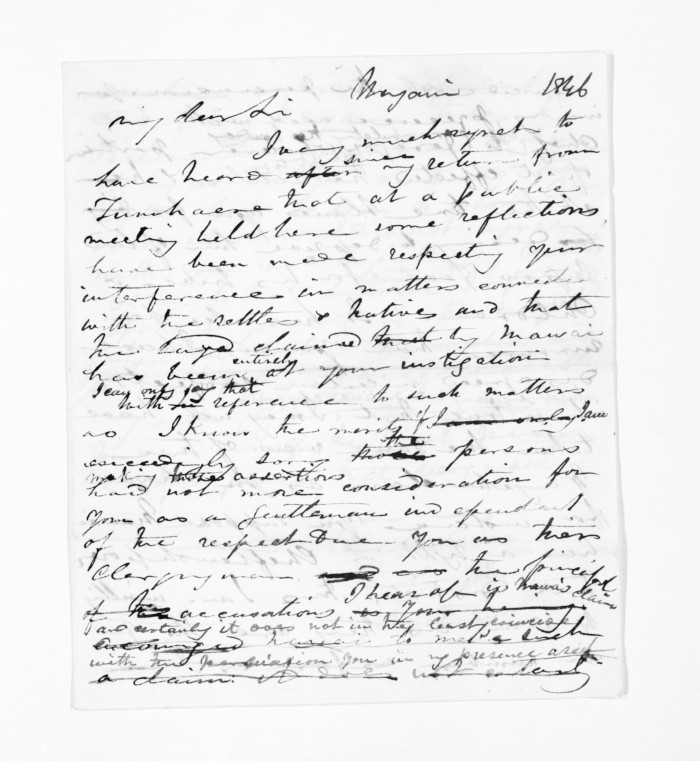 1846
my dear Sir
I very much regret to
have heard after since my return from
that at a public
meeting held here some reflections
have been made respecting your
interference in matters connected
with the settlers & natives and that
the land claimed by Mawai
has been entirely at your instigation
I can only say that
with reference to such matters
as I know the merits of I am only I am
exceedingly sorry those the persons
making these assertions
had not more consideration for
you as a gentleman independent
of the respect due you as their
Clergyman and the principal
of the accusations I hear of is Mawai's claim
and certainly it does not in the least coincide
encouraged to make such
with the persuasion you in my presence
a claim. it does not